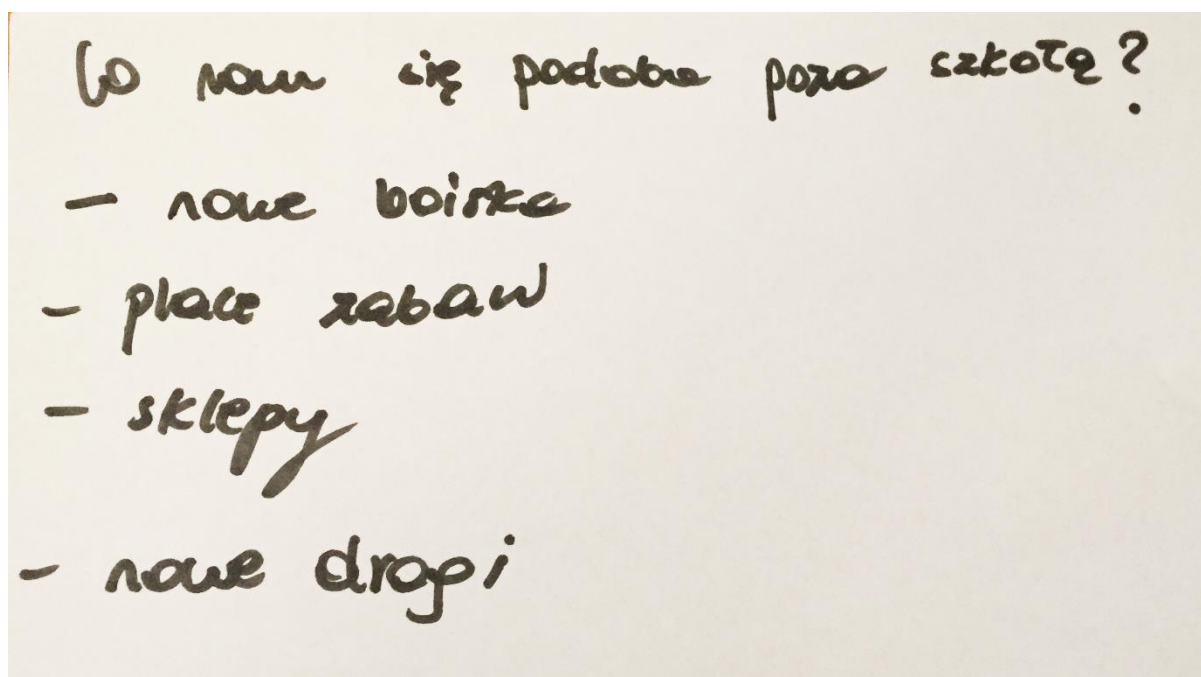 Co nam się podoba poza szkołą?
- nowe boiska
- place zabaw
- sklepy
- nowe drogi